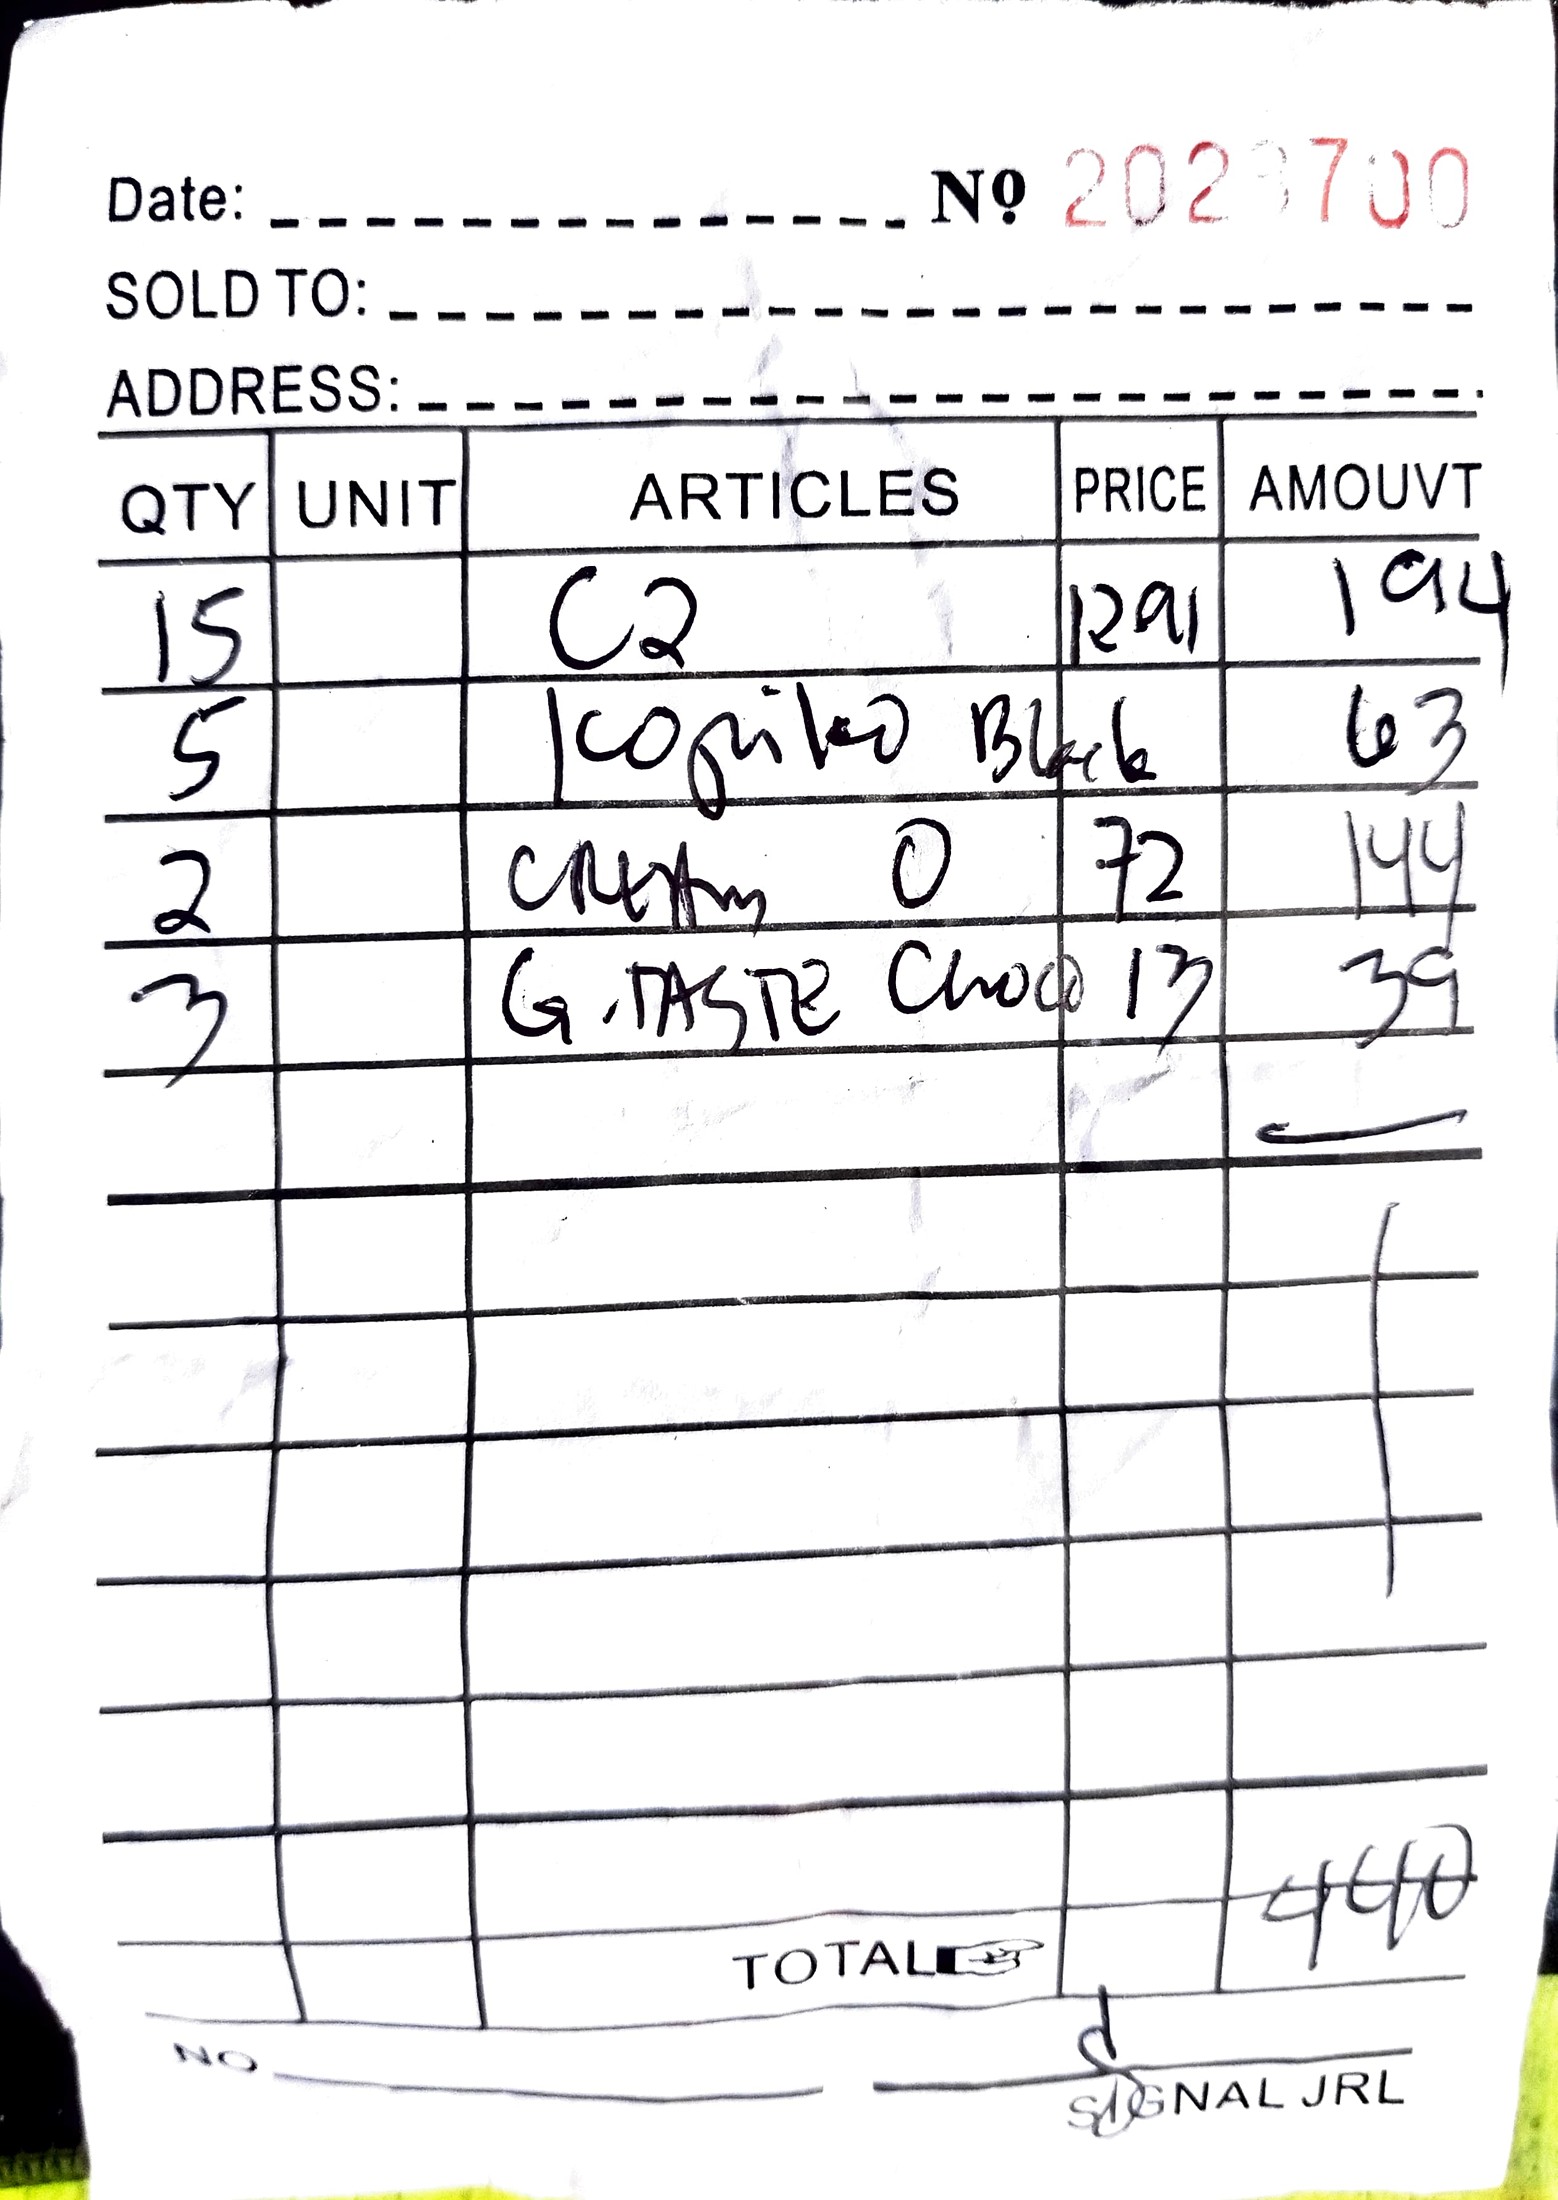 Date: Nọ 2023700
SOLD TO:
ADDRESS:
QTY UNIT ARTICLES PRICE AMOUVT
15 C2 1291 194
5 Kopiko Black 63
2 CREAM O 72 144
3 G.TASTE Choco 13 39
440
TOTAL
NO
SIGNAL JRL